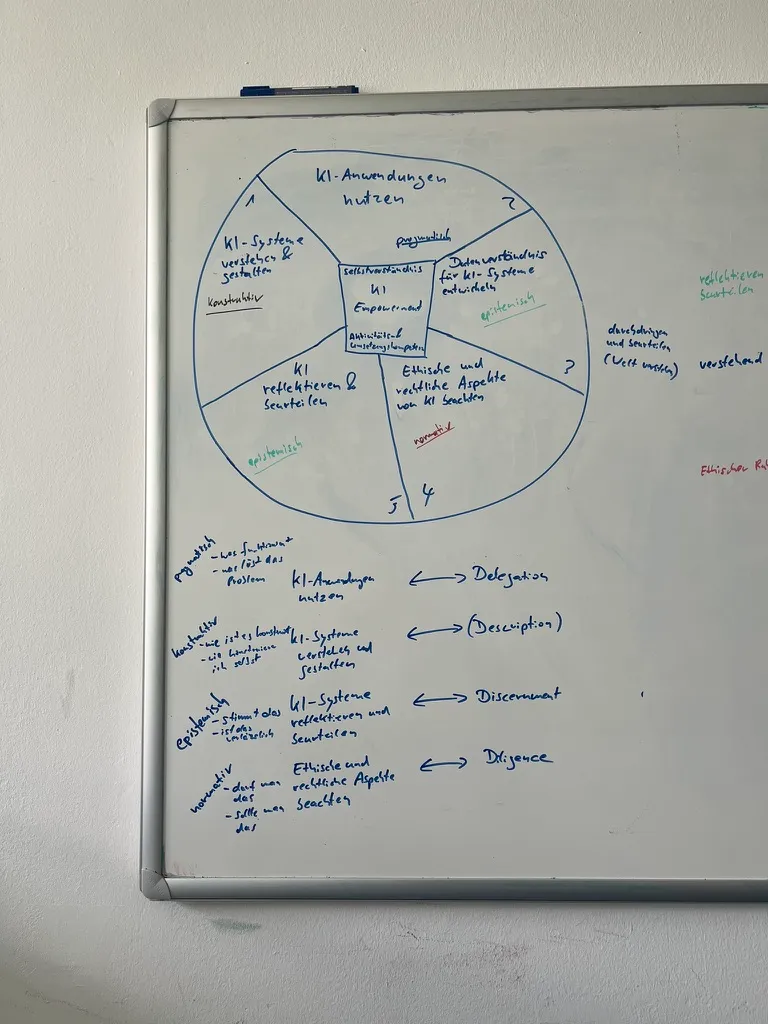 KI-Anwendungen
nutzen
pragmatisch
1
2
KI-Systeme
verstehen &
gestalten
konstruktiv
Selbstverständnis
KI
Empowerment
Aktivitäten &
Umsetzungskompetenz
Datenverständnis
für KI-Systeme
entwickeln
epistemisch
?
KI
reflektieren &
beurteilen
epistemisch
5
Ethische und
rechtliche Aspekte
von KI beachten
normativ
4
reflektieren
beurteilen
durchdringen
und beurteilen
(Welt verstehen)
verstehend
Ethischer
pragmatisch
- was funktioniert
- was löst das
Problem
KI-Anwendungen
nutzen
Delegation
konstruktiv
- wie ist es konstruiert
- wie konstruiere
ich selbst
KI-Systeme
verstehen und
gestalten
(Description)
epistemisch
- stimmt das
- ist das
verlässlich
KI-Systeme
reflektieren und
beurteilen
Discernment
normativ
- darf man
das
- sollte man
das
Ethische und
rechtliche Aspekte
beachten
Diligence